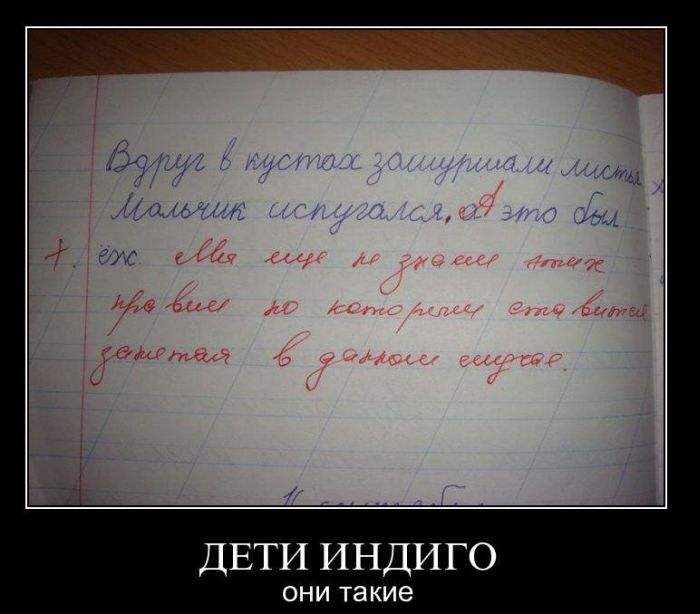 Вдруг в кустах зашуршали листья
Мальчик испугался. А это был
ёж. Мы еще не знаем этих
правил по которым ставится
запятая в данном случае.
ДЕТИ ИНДИГО
они такие